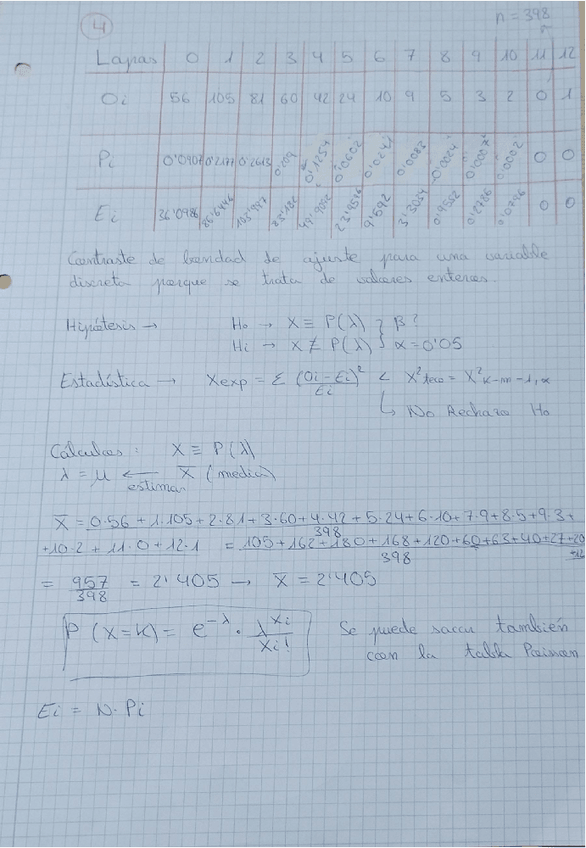 4
n = 398
Lapas 0 1 2 3 4 5 6 7 8 9 10 11 12
Oi 56 105 81 60 42 24 10 9 5 3 2 0 1
Pi 0'0907 0'2177 0'2613 0'209 0'1254 0'0602 0'0241 0'0083 0'0024 0'0007 0'0002 0 0
Ei 36'0986 86'6446 103'997 83'182 49'9092 23'9596 9'592 3'3034 0'9552 0'2786 0'0796 0 0
Contraste de bondad de ajuste para una variable
discreta porque se trata de valores enteros.
Hipótesis → Ho → X ≡ P(λ) } β?
Hi → X ≢ P(λ) } α = 0'05
Estadística → Xexp = Σ (Oi - Ei)² / Ei < X²teo = X² k-m-1, α
↳ No Rechazo Ho
Cálculos: X ≡ P(λ)
λ = μ ← X̄ (media)
estimar
X̄ = 0·56 + 1·105 + 2·81 + 3·60 + 4·42 + 5·24 + 6·10 + 7·9 + 8·5 + 9·3 +
398
+10·2 + 11·0 + 12·1 = 105 + 162 + 180 + 168 + 120 + 60 + 63 + 40 + 27 + 20 +12
398
= 957/398 = 2'405 → X̄ = 2'405
P (X = K) = e^-λ · λ^xi / xi!
Se puede sacar también
con la tabla Poisson
Ei = N · Pi